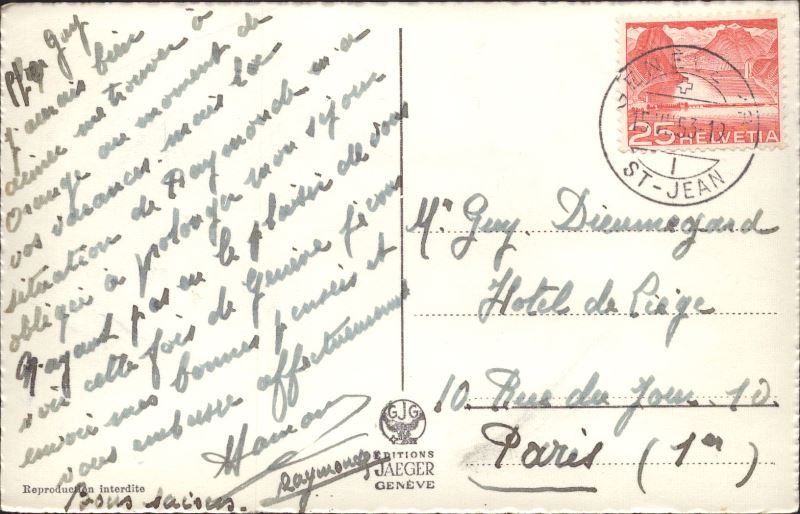 Mon Guy
J'aurais bien
aimée me trouver à
Orange au moment de
vos vacances. mais la
situation de Raymonde m'a
obligée à prolonger mon séjour
N'ayant pas eu le plaisir de vous
voir cette fois de Genève je vous
envoie mes bonnes pensées et
vous embrasse affectueusement
Maman
Raymonde
Bons baisers.
Reproduction interdite
GJG
EDITIONS
JAEGER
GENÈVE
25 HELVETIA
GENÈVE
53
1
ST-JEAN
Mr Guy Dieumegard
Hotel de Liège
10 Rue du Jour. 10
Paris (1er)